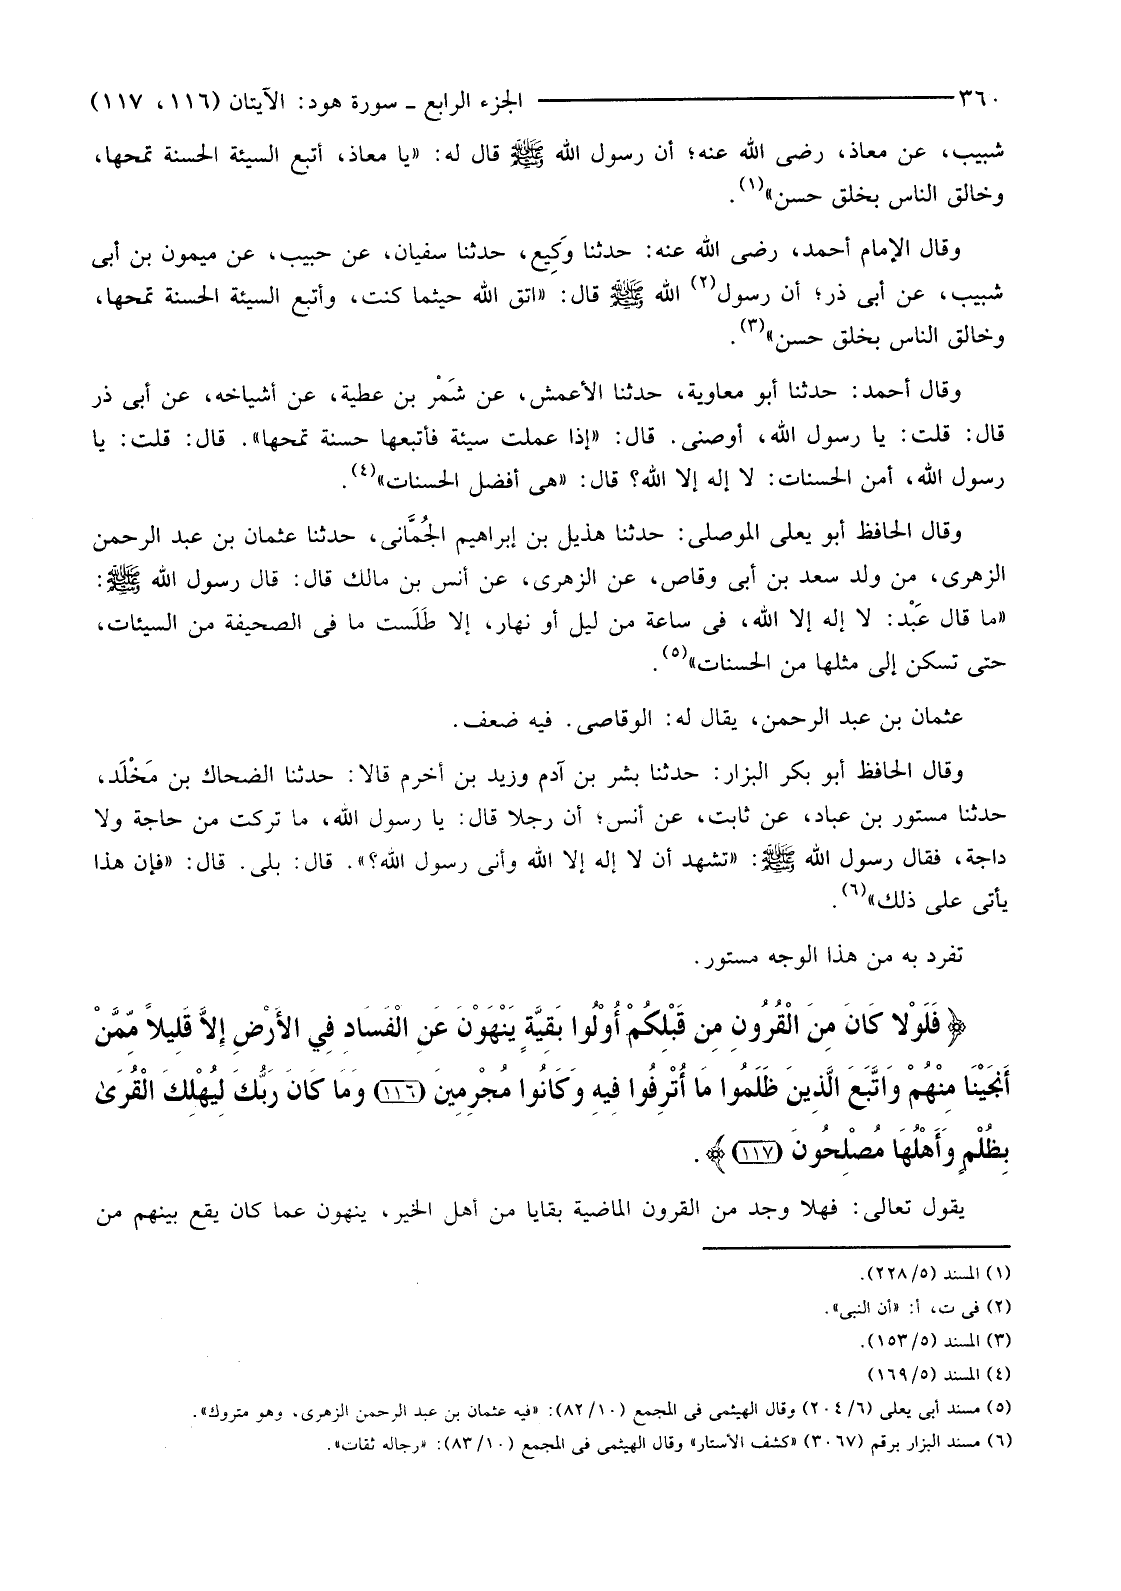 ٣٦٠ ـــــــ الجزء الرابع ـ سورة هود: الآيتان (١١٦، ١١٧)
شبيب، عن معاذ، رضى الله عنه؛ أن رسول الله ﷺ قال له: «يا معاذ، أتبع السيئة الحسنة تمحها،
وخالق الناس بخلق حسن»(١).
وقال الإمام أحمد، رضى الله عنه: حدثنا وَكِيع، حدثنا سفيان، عن حبيب، عن ميمون بن أبى
شبيب، عن أبى ذر؛ أن رسول(٢) الله ﷺ قال: «اتق الله حيثما كنت، وأتبع السيئة الحسنة تمحها،
وخالق الناس بخلق حسن»(٣).
وقال أحمد: حدثنا أبو معاوية، حدثنا الأعمش، عن شَمْر بن عطية، عن أشياخه، عن أبى ذر
قال: قلت: يا رسول الله، أوصنى. قال: «إذا عملت سيئة فأتبعها حسنة تمحها». قال: قلت: يا
رسول الله، أمن الحسنات: لا إله إلا الله؟ قال: «هى أفضل الحسنات»(٤).
وقال الحافظ أبو يعلى الموصلى: حدثنا هذيل بن إبراهيم الجُمَّانى، حدثنا عثمان بن عبد الرحمن
الزهرى، من ولد سعد بن أبى وقاص، عن الزهرى، عن أنس بن مالك قال: قال رسول الله ﷺ:
«ما قال عَبْد: لا إله إلا الله، فى ساعة من ليل أو نهار، إلا طَلَست ما فى الصحيفة من السيئات،
حتى تسكن إلى مثلها من الحسنات»(٥).
عثمان بن عبد الرحمن، يقال له: الوقاصى. فيه ضعف.
وقال الحافظ أبو بكر البزار: حدثنا بشر بن آدم وزيد بن أخرم قالا: حدثنا الضحاك بن مَخْلَد،
حدثنا مستور بن عباد، عن ثابت، عن أنس؛ أن رجلا قال: يا رسول الله، ما تركت من حاجة ولا
داجة، فقال رسول الله ﷺ: «تشهد أن لا إله إلا الله وأنى رسول الله؟». قال: بلى. قال: «فإن هذا
يأتى على ذلك»(٦).
تفرد به من هذا الوجه مستور.
﴿ فَلَوْلا كَانَ مِنَ الْقُرُونِ مِن قَبْلِكُمْ أُوْلُوا بَقِيَّةٍ يَنْهَوْنَ عَنِ الْفَسَادِ فِي الأَرْضِ إِلاَّ قَلِيلاً مِّمَّنْ
أَنجَيْنَا مِنْهُمْ وَاتَّبَعَ الَّذِينَ ظَلَمُوا مَا أُتْرِفُوا فِيهِ وَكَانُوا مُجْرِمِينَ (١١٦) وَمَا كَانَ رَبُّكَ لِيُهْلِكَ الْقُرَىٰ
بِظُلْمٍ وَأَهْلُهَا مُصْلِحُونَ (١١٧) ﴾ .
يقول تعالى: فهلا وجد من القرون الماضية بقايا من أهل الخير، ينهون عما كان يقع بينهم من
(١) المسند (٥/ ٢٢٨).
(٢) فى ت، أ: «أن النبى».
(٣) المسند (٥/ ١٥٣).
(٤) المسند (٥/ ١٦٩)
(٥) مسند أبى يعلى (٦/ ٢٠٤) وقال الهيثمى فى المجمع (١٠/ ٨٢): «فيه عثمان بن عبد الرحمن الزهرى، وهو متروك».
(٦) مسند البزار برقم (٣٠٦٧) «كشف الأستار» وقال الهيثمى فى المجمع (١٠/ ٨٣): «رجاله ثقات».